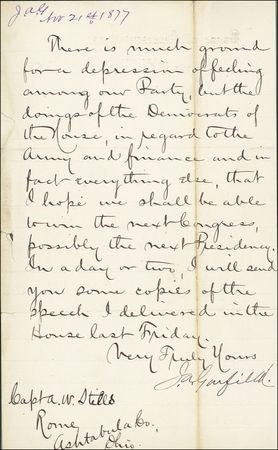 J.A.G. Nov 21st 1877
There is much ground
for a depression of feeling
among our Party, but the
doings of the Democrats of
the House, in regard to the
Army and finance and in
fact everything else, that
I hope we shall be able
to win the next Congress,
possibly the next Presidency.
In a day or two, I will send
you some copies of the
speech I delivered in the
House last Friday.
Very Truly Yours
J.A. Garfield.
Capt A. W. Stiles
Rome,
Ashtabula Co.,
Ohio.